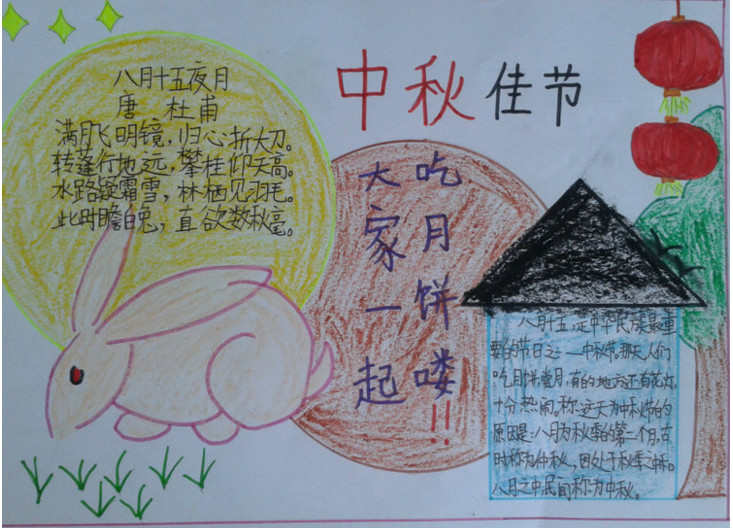 中秋佳节
八月十五夜月
唐 杜甫
满月飞明镜，归心折大刀。
转蓬行地远，攀桂仰天高。
水路凝霜雪，林栖见羽毛。
此时瞻白兔，直欲数秋毫。
大家一起
吃月饼喽!!
八月十五，是中华民族最重
要的节日之一——中秋节。那天人们
吃月饼，赏月，有的地方还有花灯，
十分热闹。称这天为中秋节的
原因是：八月为秋季的第二个月，古
时称为仲秋，因处于秋季之中。
八月之中，民间称为中秋。